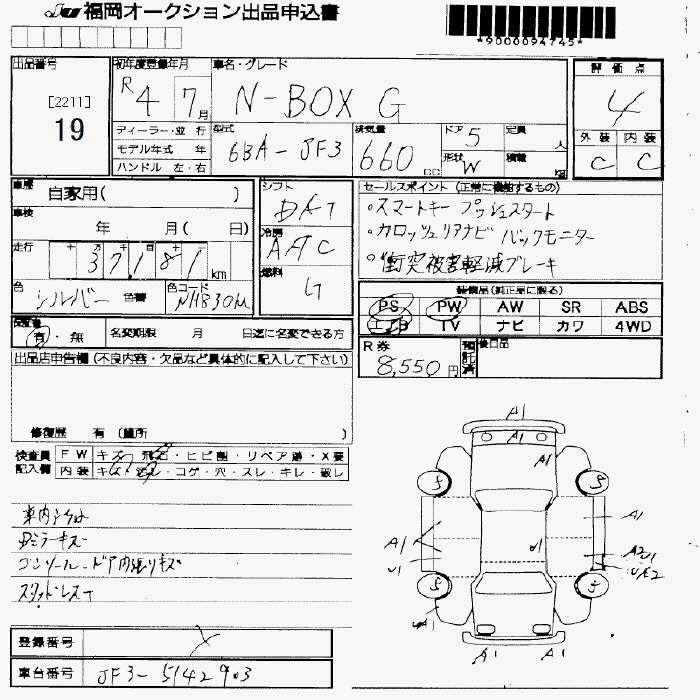 福岡オークション出品申込書
*9000094745*
出品番号
[2211]
19
初年度登録年月
R 4 7月
車名・グレード
N-BOX G
評価点
4
ディーラー・並行
モデル年式 年
ハンドル 左・右
型式
6BA-JF3
排気量
660cc
ドア
5
形状
W
定員
人
積載
kg
外装
C
内装
C
車歴
自家用( )
車検
年 月( 日)
走行
十 万 千 百 十 一
37,181 km
色
シルバー 色替
色コード
NH830M
シフト
DAT
冷房
AAC
燃料
G
セールスポイント (正常に機能するもの)
・スマートキー プッシュスタート
・カロッツェリアナビ バックモニター
・衝突被害軽減ブレーキ
装備品(純正品に限る)
PS PW AW SR ABS
エアB TV ナビ カワ 4WD
保証書
有・無
名変期限 月 日迄に名変できる方
R券
8,550円
預託済
後日品
出品店申告欄 (不良内容・欠品など具体的に記入して下さい)
修復歴 有 (箇所 )
検査員
記入欄
FW キズ・飛石・ヒビ割・リペア跡・X要
内装 キズ・汚レ・コゲ・穴・スレ・キレ・破レ
Dミラーキズ
コンソール・ドア内張りキズ
スタッドレス
登録番号
車台番号 JF3-5142903
A1
A1
A1
A1
A1
U1
U1
A2U1
A1
A1
A1